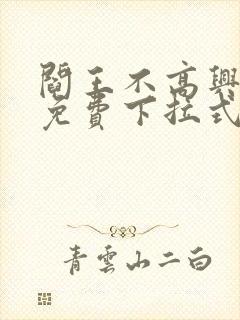 閻王不高興
免費下拉式
青雲山二白